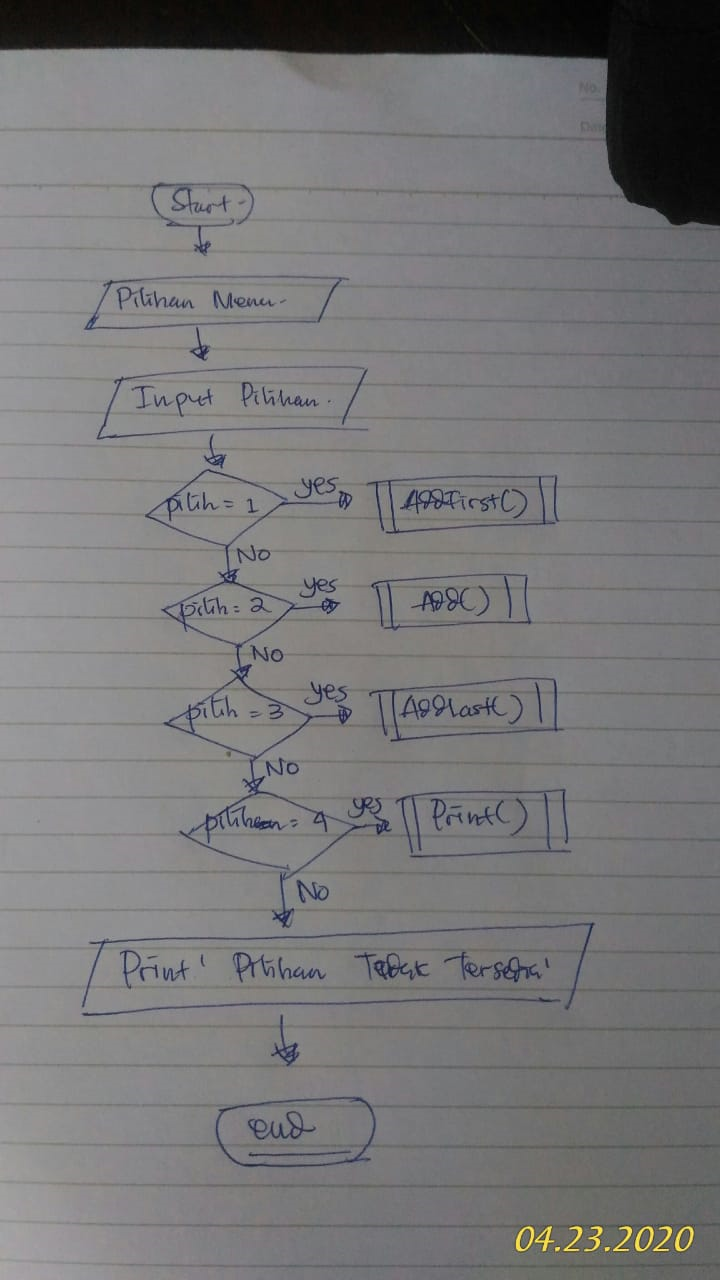 No.
Date
Start
Pilihan Menu
Input Pilihan.
pilih = 1
yes
AddFirst()
No
pilih = 2
yes
Add()
No
pilih = 3
yes
AddLast()
No
pilihan = 4
yes
Print()
No
Print' Pilihan Tidak Tersedia'
end
04.23.2020